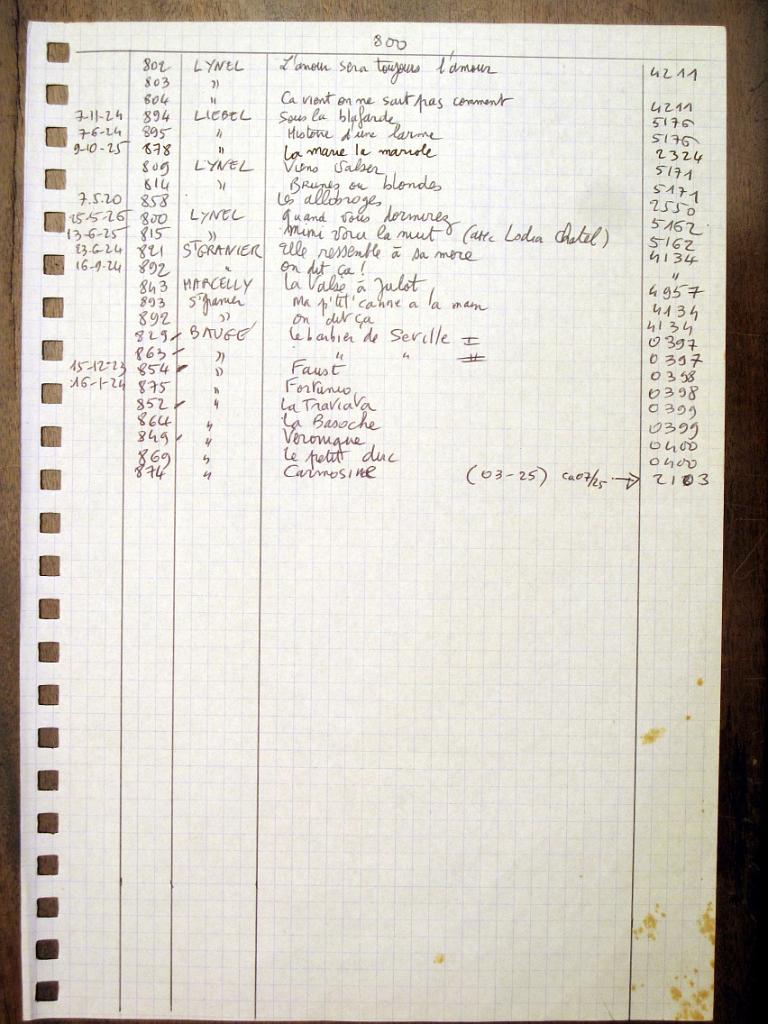 800
802 LYNEL L'amour sera toujours l'amour 4211
803 "
804 " Ca vient on ne sait pas comment 4211
7-11-24 894 LIEBEL Sous la blafarde 5176
7-6-24 895 " Histoire d'une larme 5176
9-10-25 878 " La marie la mariole 2324
809 LYNEL Viens valser 5171
814 " Brunes ou blondes 5171
7.5.20 858 Les allobroges 2550
25-5-26 800 LYNEL Quand vous dormirez 5162
13-6-25 815 " Mimi voici la nuit (avec Chatel) 5162
23-6-24 821 St GRANIER Elle ressemble à sa mère 4134
16-9-24 892 " on dit ça! "
843 MARCELLY La Valse à Julot 4957
893 St Granier Ma p'tit' canne a la main 4134
892 " on dit ça 4134
829 BAUGÉ Le barbier de Seville I 0397
863 " " " II 0397
15-12-23 854 " Faust 0398
16-1-24 875 " Fortunio 0398
852 " La Traviata 0399
864 " La Basoche 0399
849 " Veronique 0400
869 " Le petit duc 0400
874 " Carmosine (03-25) ca07/25 → 2103